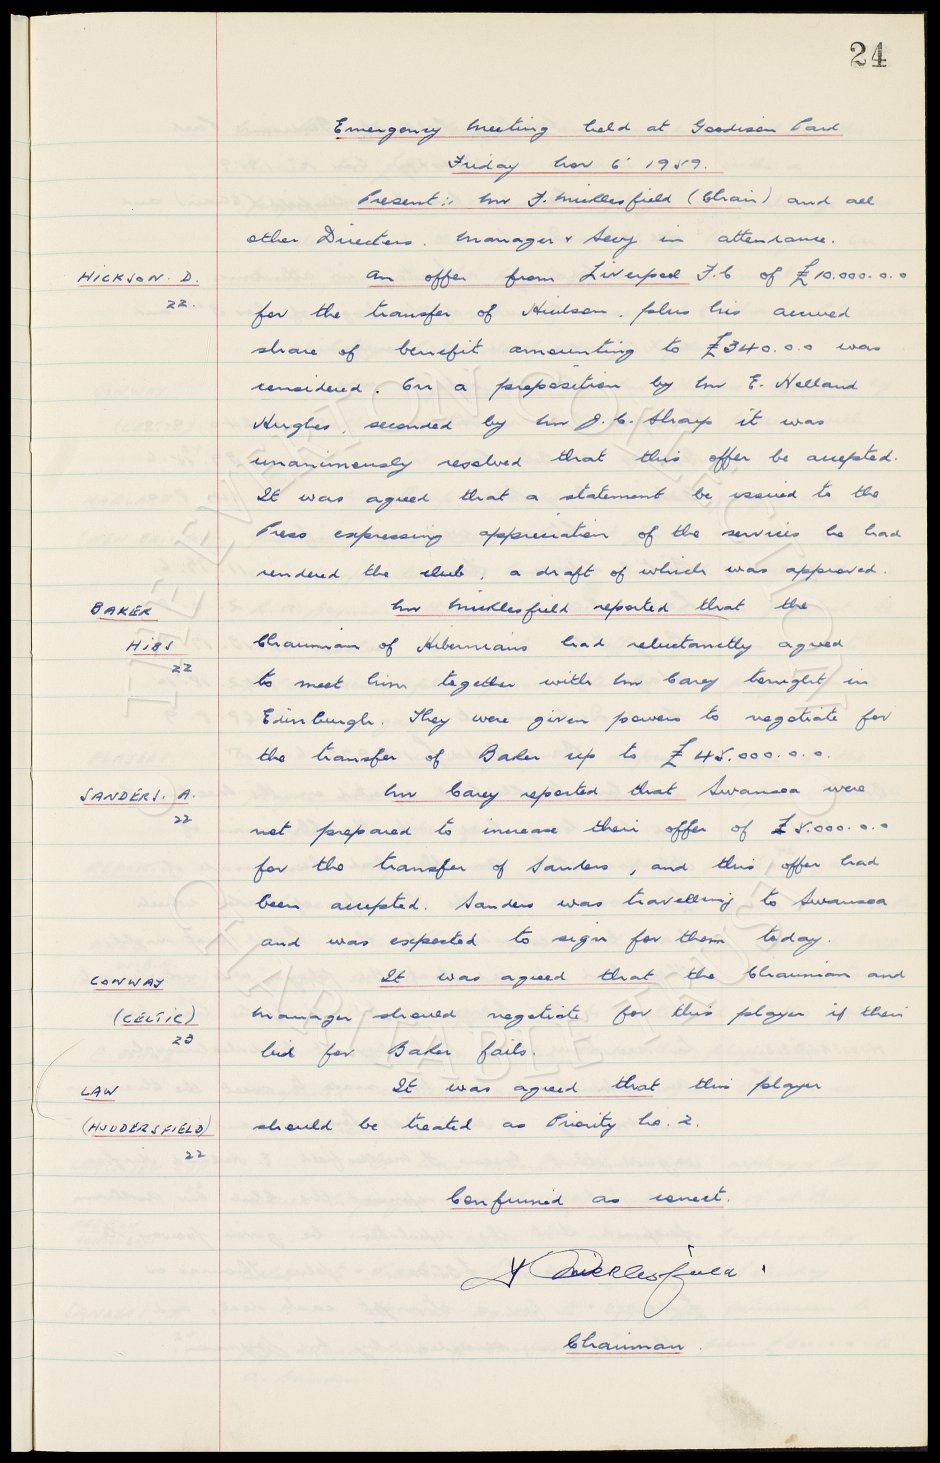 24
Emergency Meeting held at Goodison Park
Friday Nov 6 1959.
Present:: Mr F. Micklesfield (Chair) and all
other Directors. Manager & Secy in attendance.
HICKSON. D. An offer from Liverpool F.C of £10.000.0.0
22. for the transfer of Hickson. plus his accrued
share of benefit amounting to £340.0.0 was
considered. On a proposition by Mr E. Holland
Hughes, seconded by Mr J.C. Sharp it was
unanimously resolved that this offer be accepted.
It was agreed that a statement be issued to the
Press expressing appreciation of the services he had
rendered the club, a draft of which was approved.
BAKER Mr Micklesfield reported that the
HIBS Chairman of Hibernians had reluctantly agreed
22 to meet him together with Mr Carey tonight in
Edinburgh. They were given powers to negotiate for
the transfer of Baker up to £45.000.0.0.
SANDERS. A. Mr Carey reported that Swansea were
22 not prepared to increase their offer of £5.000.0.0
for the transfer of Sanders, and this offer had
been accepted. Sanders was travelling to Swansea
and was expected to sign for them today.
CONWAY It was agreed that the Chairman and
(CELTIC) Manager should negotiate for this player if their
23 bid for Baker fails.
LAW It was agreed that this player
(HUDDERSFIELD) should be treated as Priority No. 2.
22
Confirmed as correct.
F Micklesfield.
Chairman.
THE EVERTON COLLECTION
CHARITABLE TRUST